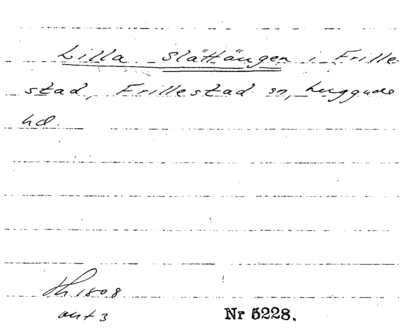 Lilla Slättängen i Frille-
stad, Frillestad sn, Luggude
hd.
Sk 1808
akt 3
Nr 5228.